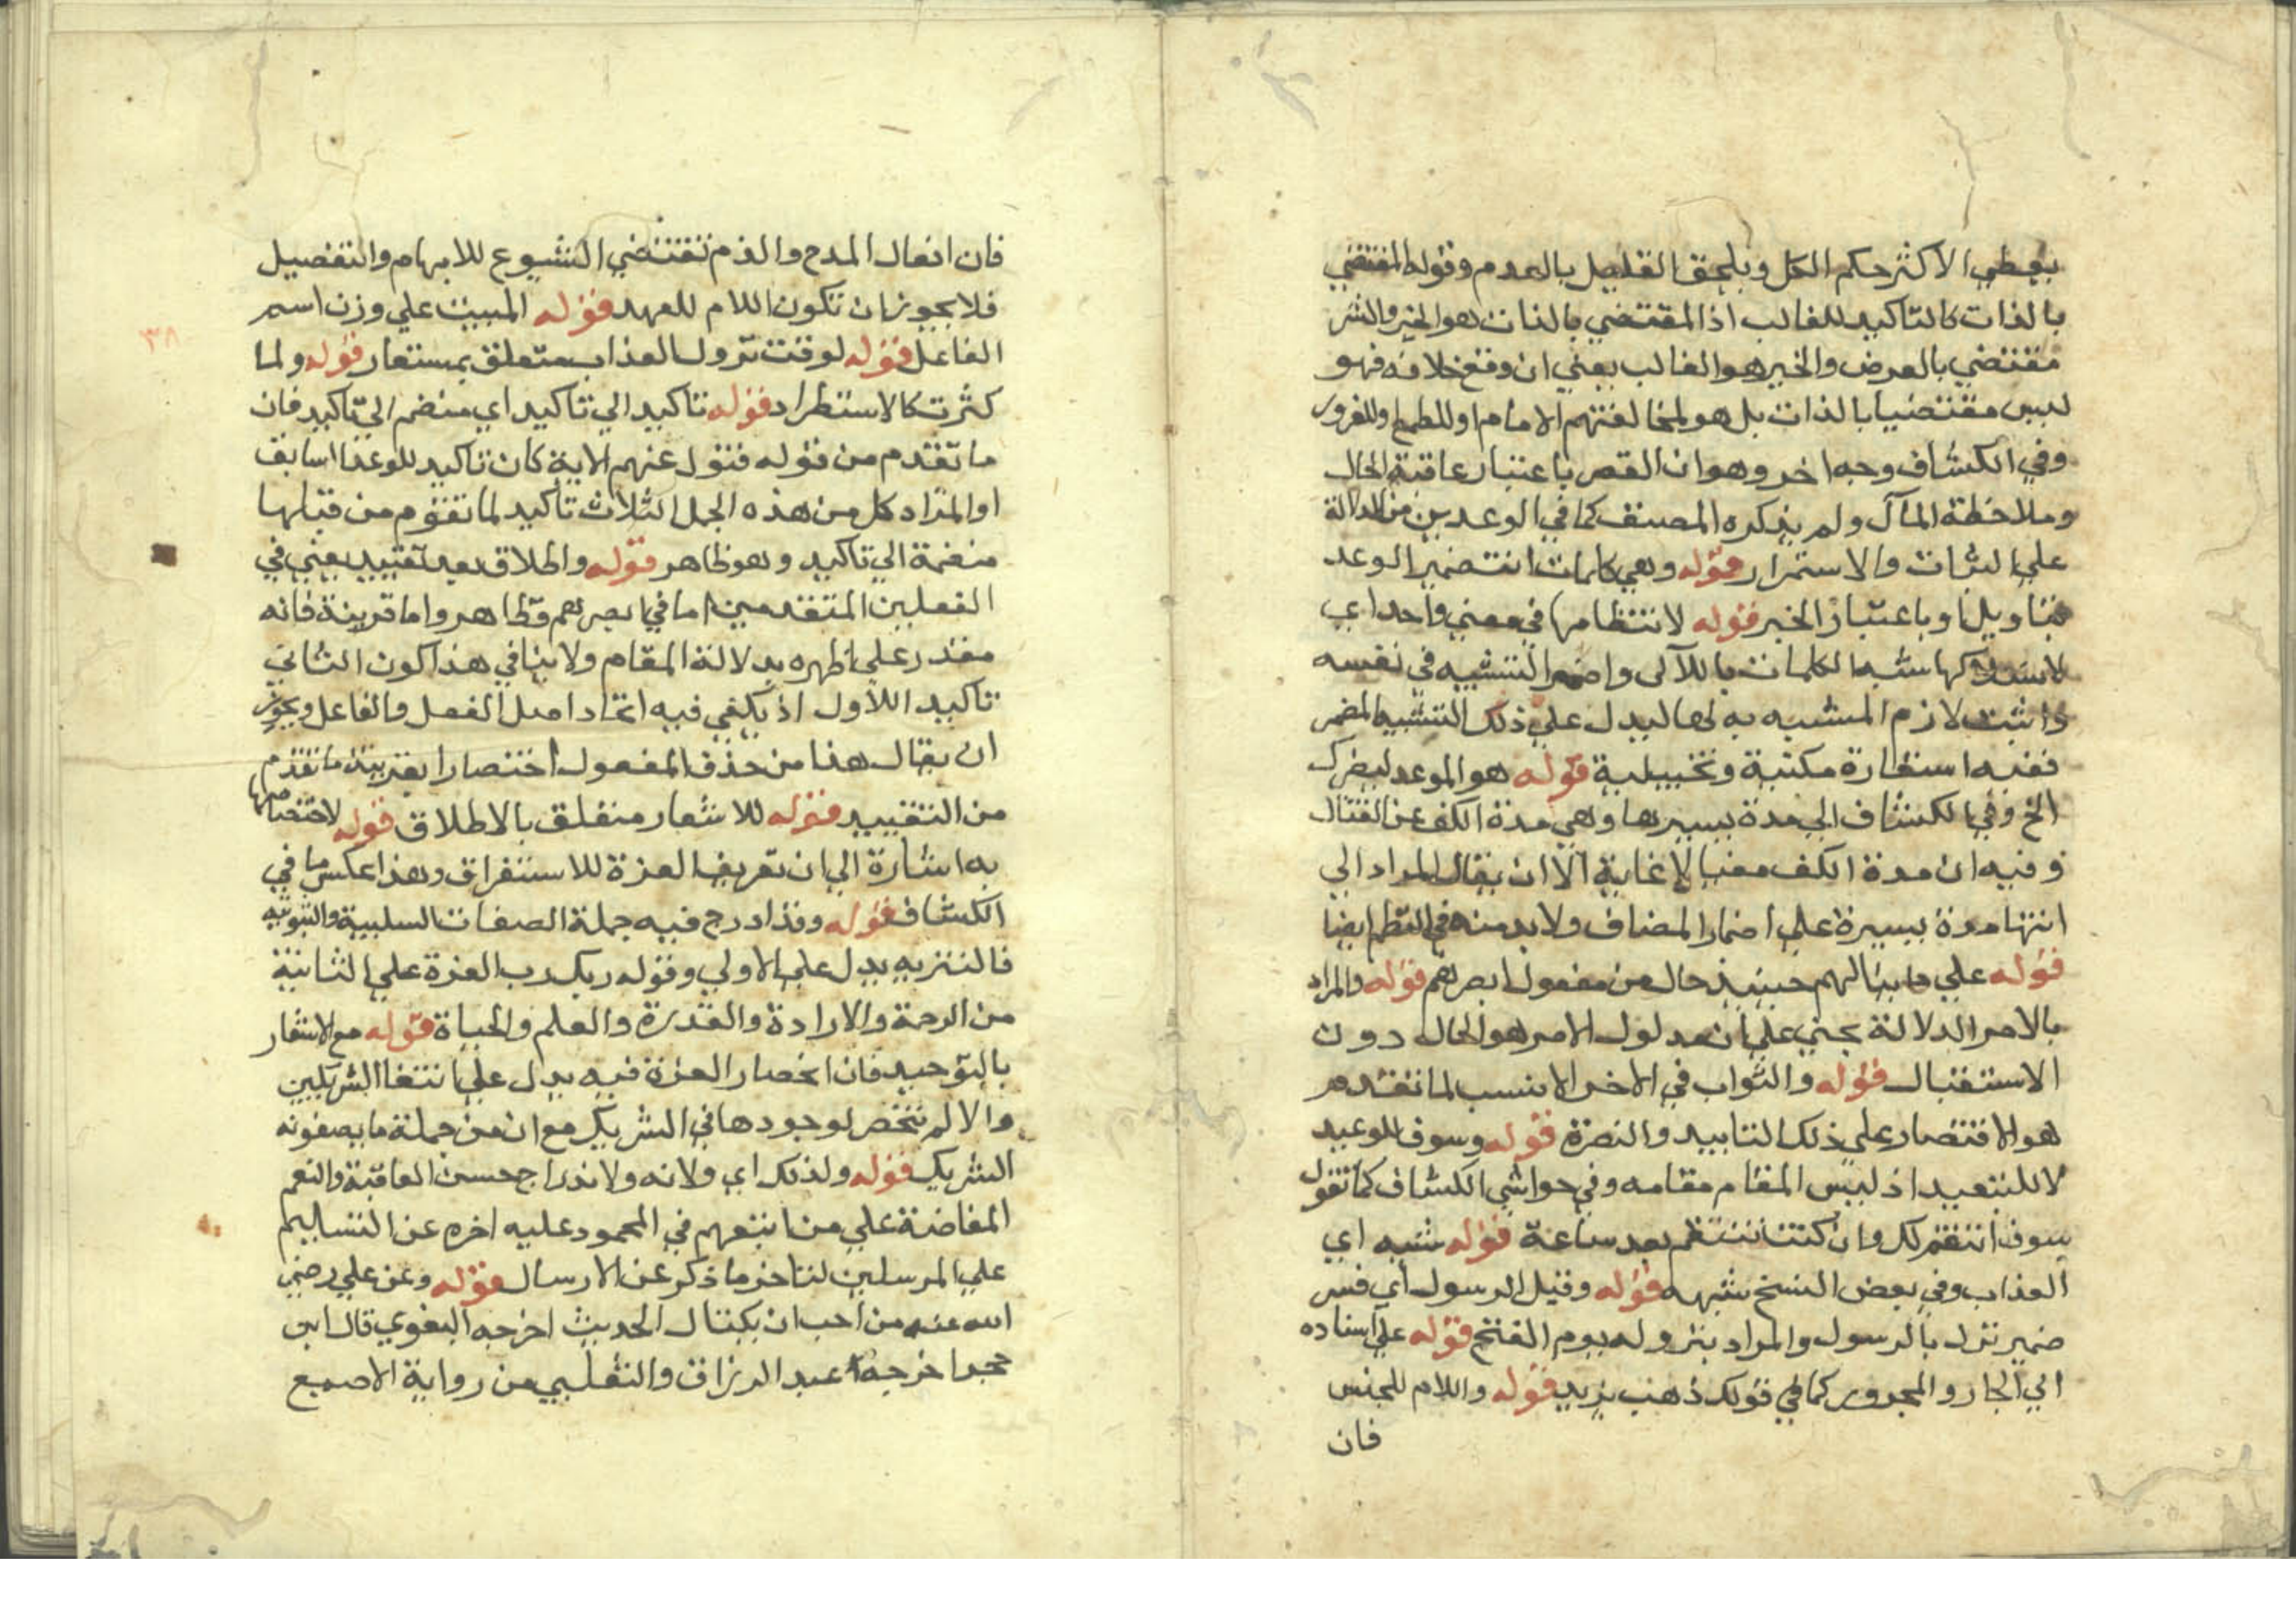 يعطي الاكثر حكم الكل ويلحق القليل بالعدم وقوله المقتضي
بالذات كالتاكيد للغالب اذ المقتضي بالذات هو الخير والشر
مقتضي بالعرض والخير هو الغالب يعني ان وقع خلافه فهو
ليس مقتضيا بالذات بل هو لمخالفتهم الامام او للطمع والغرور
وفي الكشاف وجه اخر وهو ان القصر باعتبار عاقبة الحال
وملاحظة المآل ولم يذكره المصنف كما في الوعدين من الدلالة
علي الثبات والاستمرار قوله وهي كلمات انتضمير الوعد
بتاويلنا وباعتبار الخبر قوله لانتظامها في معني واحد اي
شبه الكلمات باللآلى واضمر التشبيه في نفسه
واثبت لازم المشبه به لها ليدل علي ذلك التشبيه المضمر
ففيه استعارة مكنية وتخييلية قوله هو الموعد لنصرك
الخ وفي الكشاف الي مدة يسيرها وهي مدة الكف عن القتال
وفيه ان مدة الكف مغيا لا غاية الا ان يقال المراد الي
انتها مدة يسيرة علي اضمار المضاف ولا بد منه في النظم ايضا
قوله علي ما ينالهم حينيذ حال من مفعول ابصرهم قوله والمراد
بالامر الدلالة يعني علي ان مدلول الامر هو الحال دون
الاستقبال قوله والثواب في الاخر الانسب لما تقدم
هو الاقتصار علي ذلك التاييد والنصرة قوله وسوف للوعيد
لا للتبعيد اذ ليس المقام مقامه وفي حواشي الكشاف كما تقول
سوف انتقم لك وان كنت تنتقم بعد ساعة قوله شبه اي
العذاب وفي بعض النسخ شبهه قوله وقيل الرسول اي فسر
ضمير نزل بالرسول والمراد بنزوله يوم الفتح قوله علي اسناده
الي الجار والمجرور كما في قولك ذهب بزيد قوله واللام للجنس
فان
فان افعال المدح والذم تقتضي الشيوع للابهام والتفصيل
فلا يجوز ان تكون اللام للعهد قوله المبيت علي وزن اسم
الفاعل قوله لوقت نزول العذاب متعلق بمستعار قوله ولما
كثرت كالاستطراد قوله تاكيد الي تاكيد اي منضم الي تاكيد فان
ما تقدم من قوله فتول عنهم الاية كان تاكيد للوعد السابق
او المراد كل من هذه الجمل الثلاث تاكيد لما تقوم من قبلها
منضمة الي تاكيد وهو ظاهر قوله واطلاق بعد تقييد يعني في
الفعلين المتقدمين اما في ابصرهم فظاهر واما قرينة فانه
مقدر علي اظهره بدلالة المقام ولا ينافي هذا كون الثاني
تاكيد اللاول اذ يكفي فيه اتحاد اصل الفعل والفاعل ويجوز
ان يقال هذا من حذف المفعول اختصارا بقرينة ما تقدم
من التقييد قوله للاشعار متعلق بالاطلاق قوله لاختصاصها
به اشارة الي ان تعريف العزة للاستغراق وهذا عكس ما في
الكشاف قوله وقد ادرج فيه جملة الصفات السلبية والثبوتيه
فالتنزيه يدل علي الاولي وقوله ربك رب العزة علي الثانية
من الرحمة والارادة والقدرة والعلم والحياة قوله مع الاشعار
بالتوحيد فان انحصار العزة فيه يدل علي انتفا الشريكين
والا لم تختص لوجودها في الشريك مع ان من جملة ما يصفونه
الشريك قوله ولذلك اي ولانه ولاندراج حسن العاقبة والنعم
المفاضة علي من اتبعهم في المحمود عليه اخره عن التسليم
علي المرسلين لتاخر ما ذكر عن الارسال قوله وعن علي رضي
الله عنه من احب ان يكتال الحديث اخرجه البغوي قال ابن
حجر اخرجه عبد الرزاق والثعلبي من رواية الاصبع
٣٨